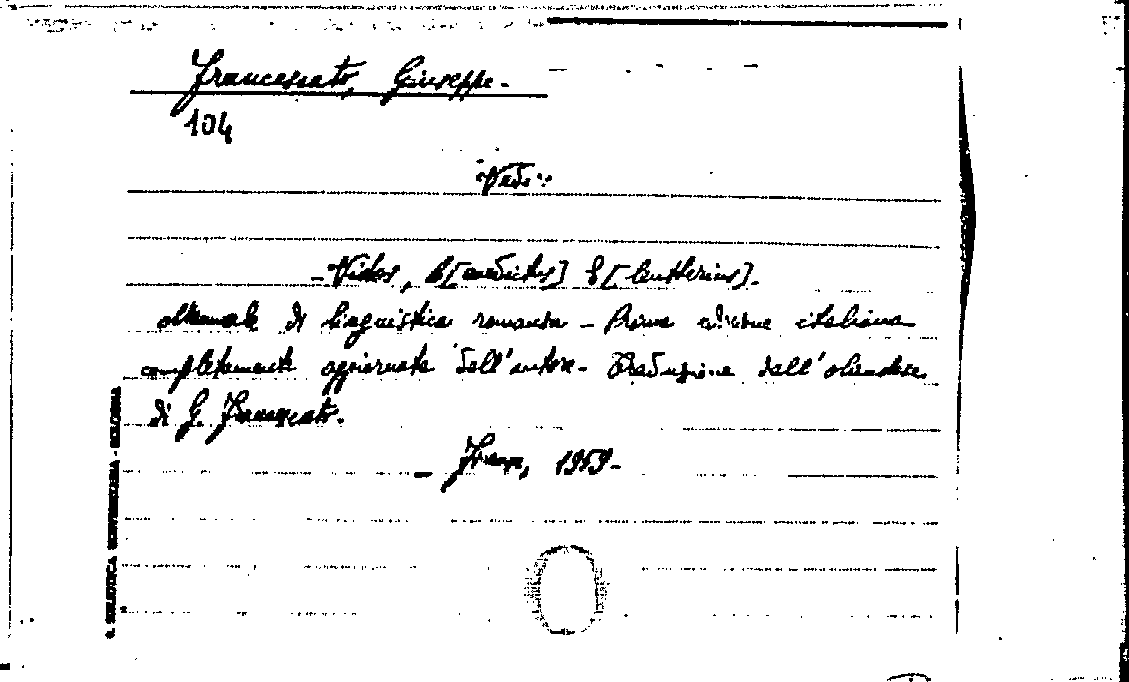 Francescato, Giuseppe.
104
Vedi:
Vidos, B[enedictus] E[leutherius].
Manuale di linguistica romanza - Prima edizione italiana
completamente aggiornata dall'autore - Traduzione dall'olandese
di G. Francescato.
- Firenze, 1959 -